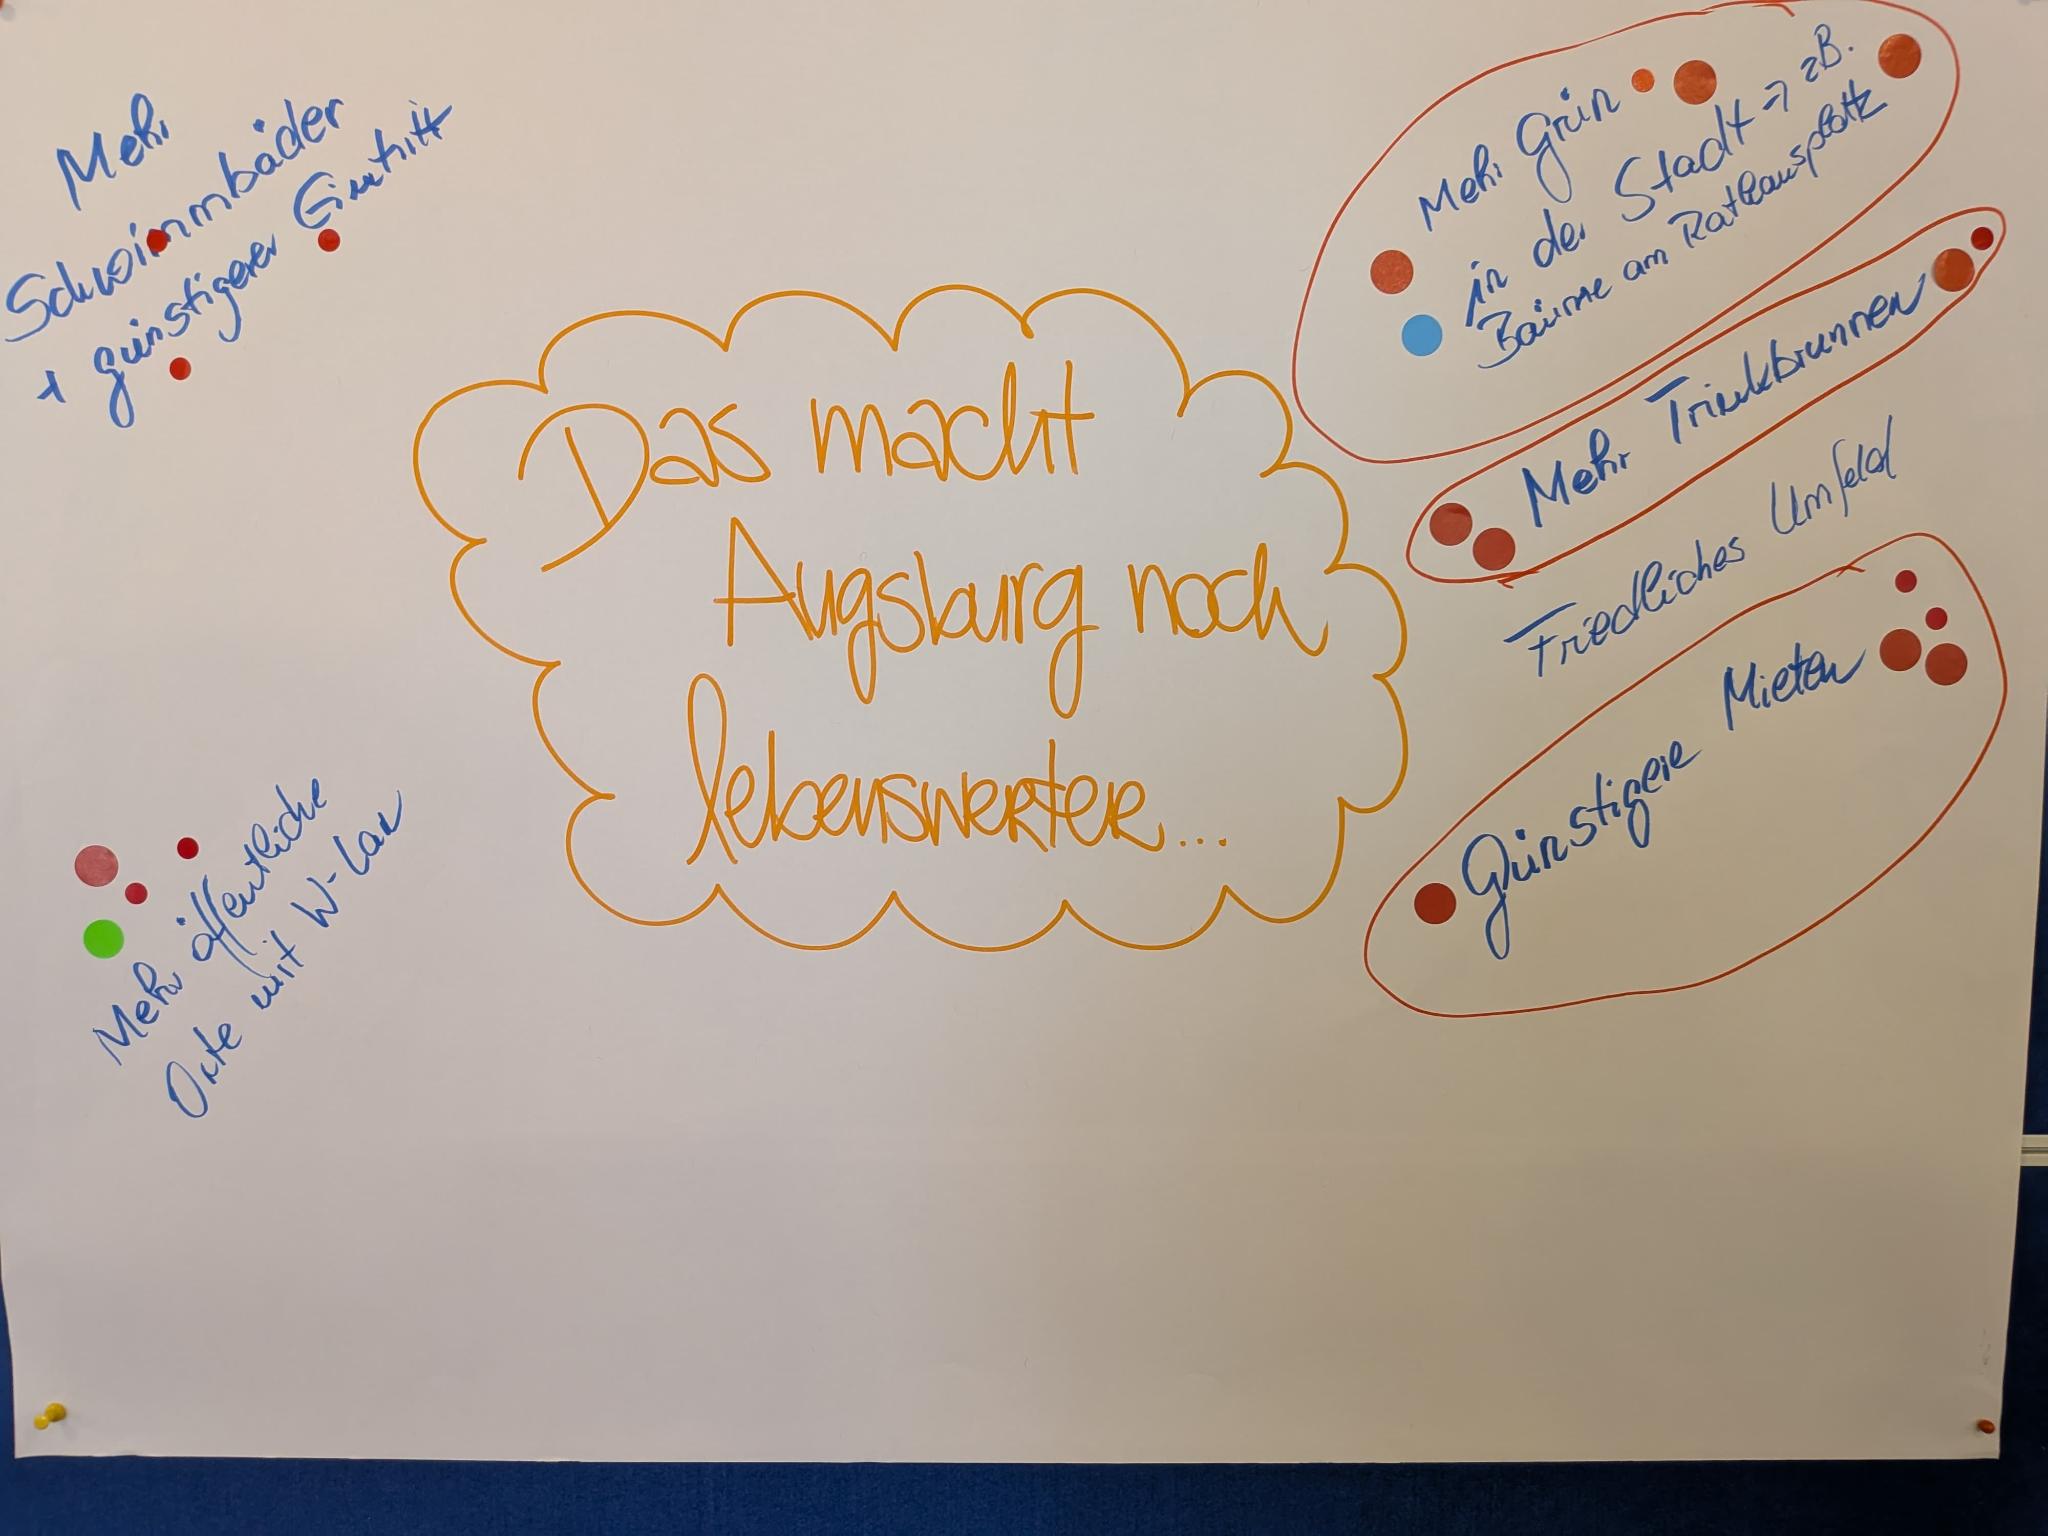 Mehr
Schwimmbäder
+ günstigerer Eintritt
Das macht
Augsburg noch
lebenswerter...
Mehr Grün
in der Stadt → zB.
Bäume am Rathausplatz
Mehr Trinkbrunnen
Friedliches Umfeld
Günstigere Mieten
Mehr öffentliche
Orte mit W-Lan